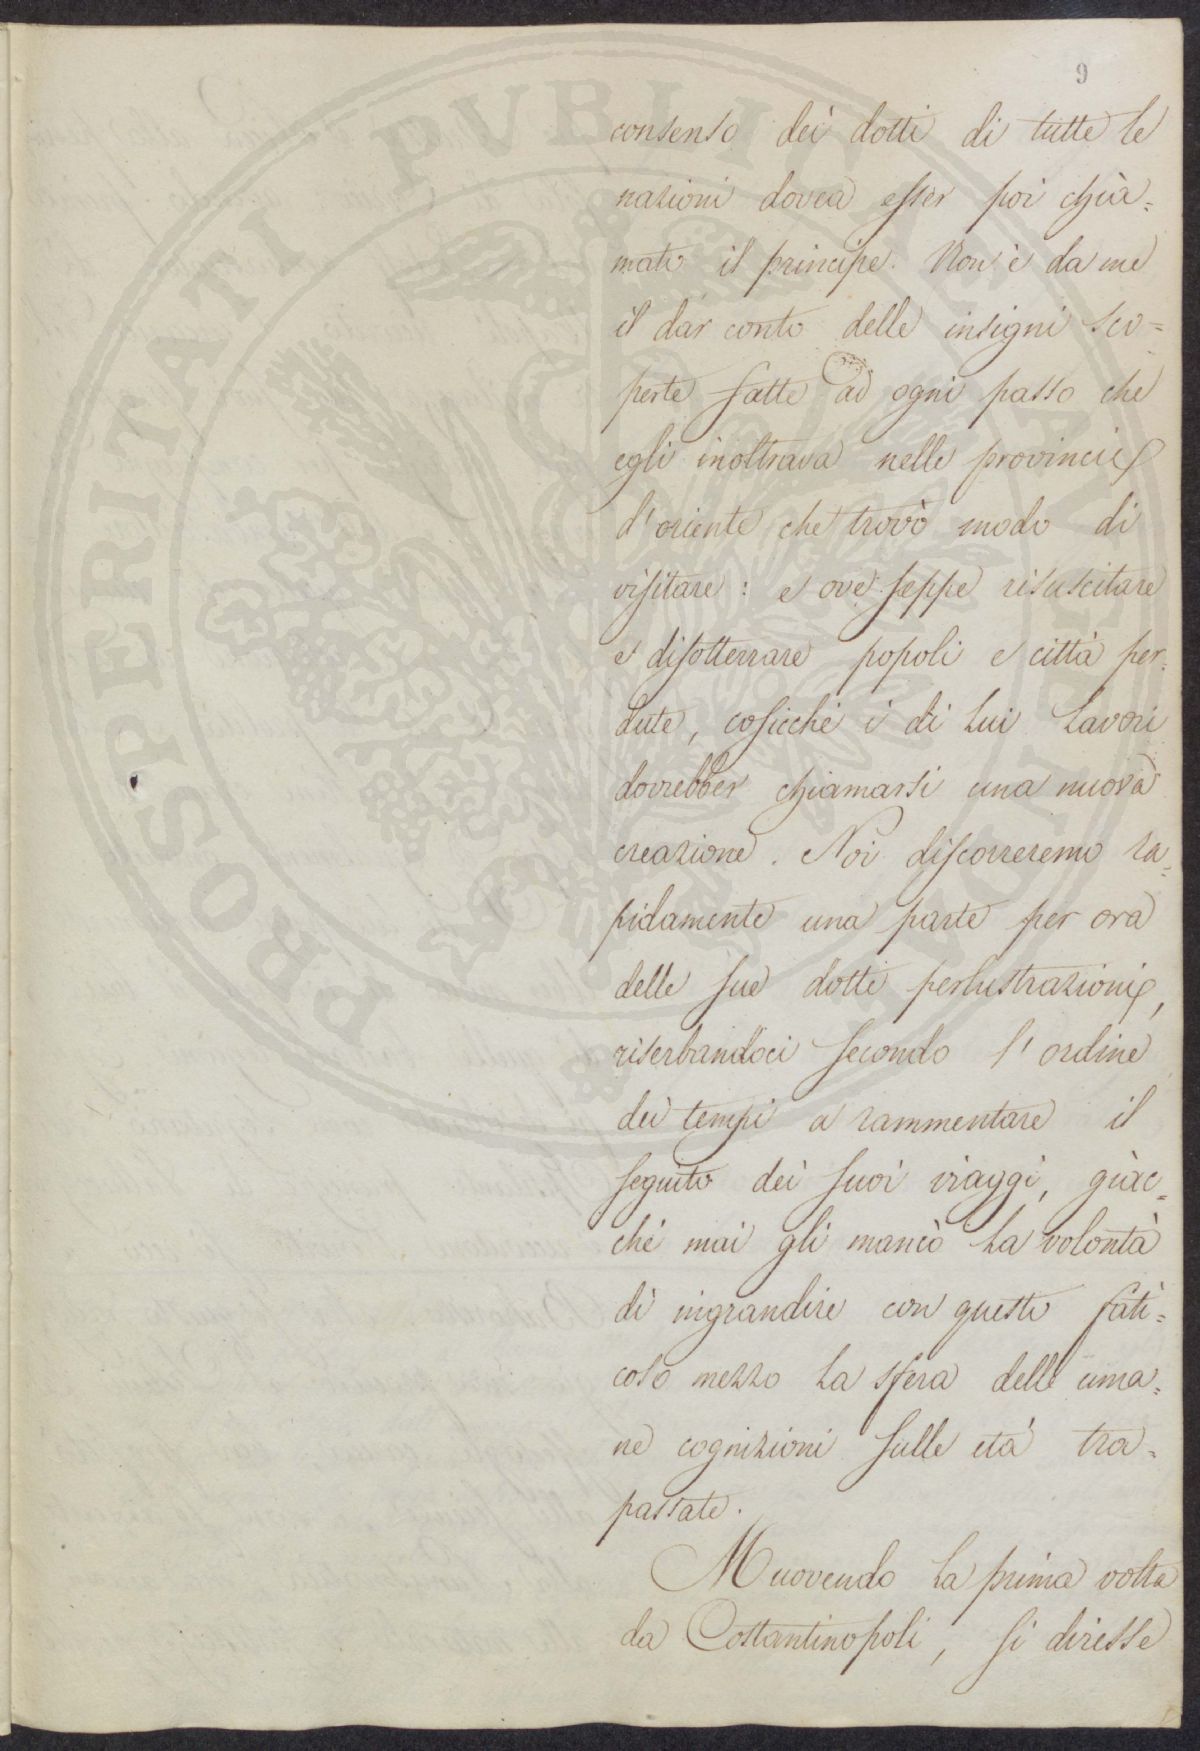 9
consenso dei dotti di tutte le
nazioni dovea esser poi chia=
mato il principe. Non è da me
il dar conto delle insigni sco=
perte fatte ad ogni passo che
egli inoltrava nelle provincie
d'oriente che trovò modo di
visitare: e ove seppe risuscitare
e disotterrare popoli e città per=
dute, cosicchè i di lui lavori
dovrebber chiamarsi una nuova
creazione. Noi discorreremo ra=
pidamente una parte per ora
delle sue dotte perlustrazioni,
riserbandoci secondo l'ordine
dei tempi a rammentare il
seguito dei suoi viaggi, giac=
chè mai gli mancò la volontà
di ingrandire con questo fati=
coso mezzo la sfera delle uma=
ne cognizioni sulle età tra=
passate.
Muovendo la prima volta
da Costantinopoli, si diresse
PROSPERITATI PVBLICAE